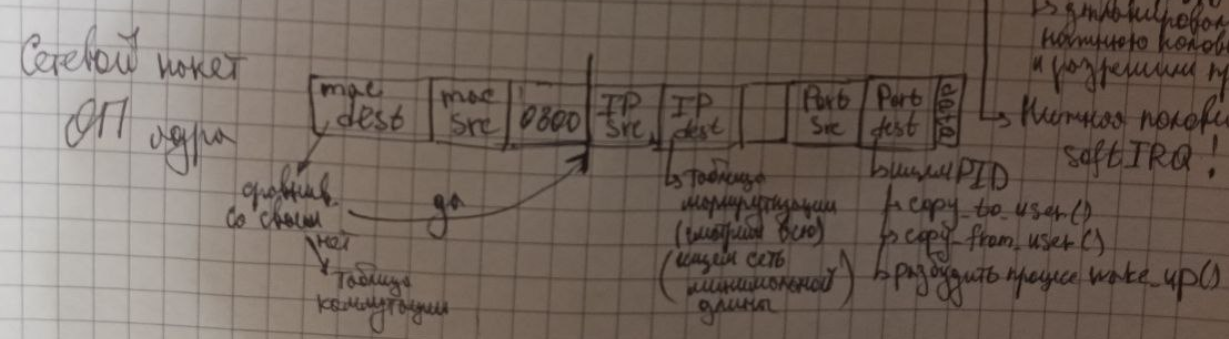 Сетевой пакет
ОП ядра
mac dest
mac src
0800
IP src
IP dest
Port src
Port dest
сравнив.
со своим
да
нет
Таблица
коммутации
таблица
маршрутизации
(смотрим всю)
(ищем сеть
минимальной
длины)
ищем PID
copy_to_user()
copy_from_user()
разбудить процесс wake_up()
и разрешили
Нижняя полови
soft IRQ!